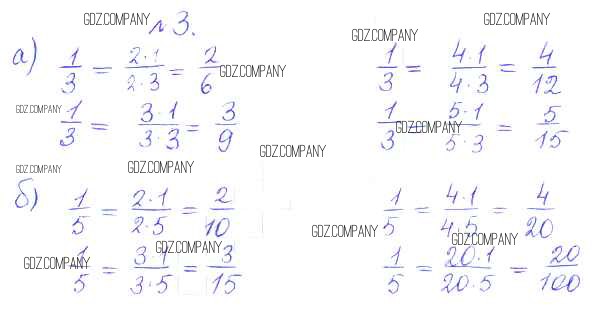 GDZ.COMPANY № 3. GDZ.COMPANY
GDZ.COMPANY
а) 1/3 = 2·1/2·3 = 2/6 1/3 = 4·1/4·3 = 4/12
GDZ.COMPANY
GDZ.COMPANY 1/3 = 3·1/3·3 = 3/9 1/3 = 5·1/5·3 = 5/15
GDZ.COMPANY
GDZ.COMPANY
GDZ.COMPANY GDZ.COMPANY
б) 1/5 = 2·1/2·5 = 2/10 1/5 = 4·1/4·5 = 4/20
GDZ.COMPANY GDZ.COMPANY
GDZ.COMPANY
GDZ.COMPANY 1/5 = 3·1/3·5 = 3/15 1/5 = 20·1/20·5 = 20/100